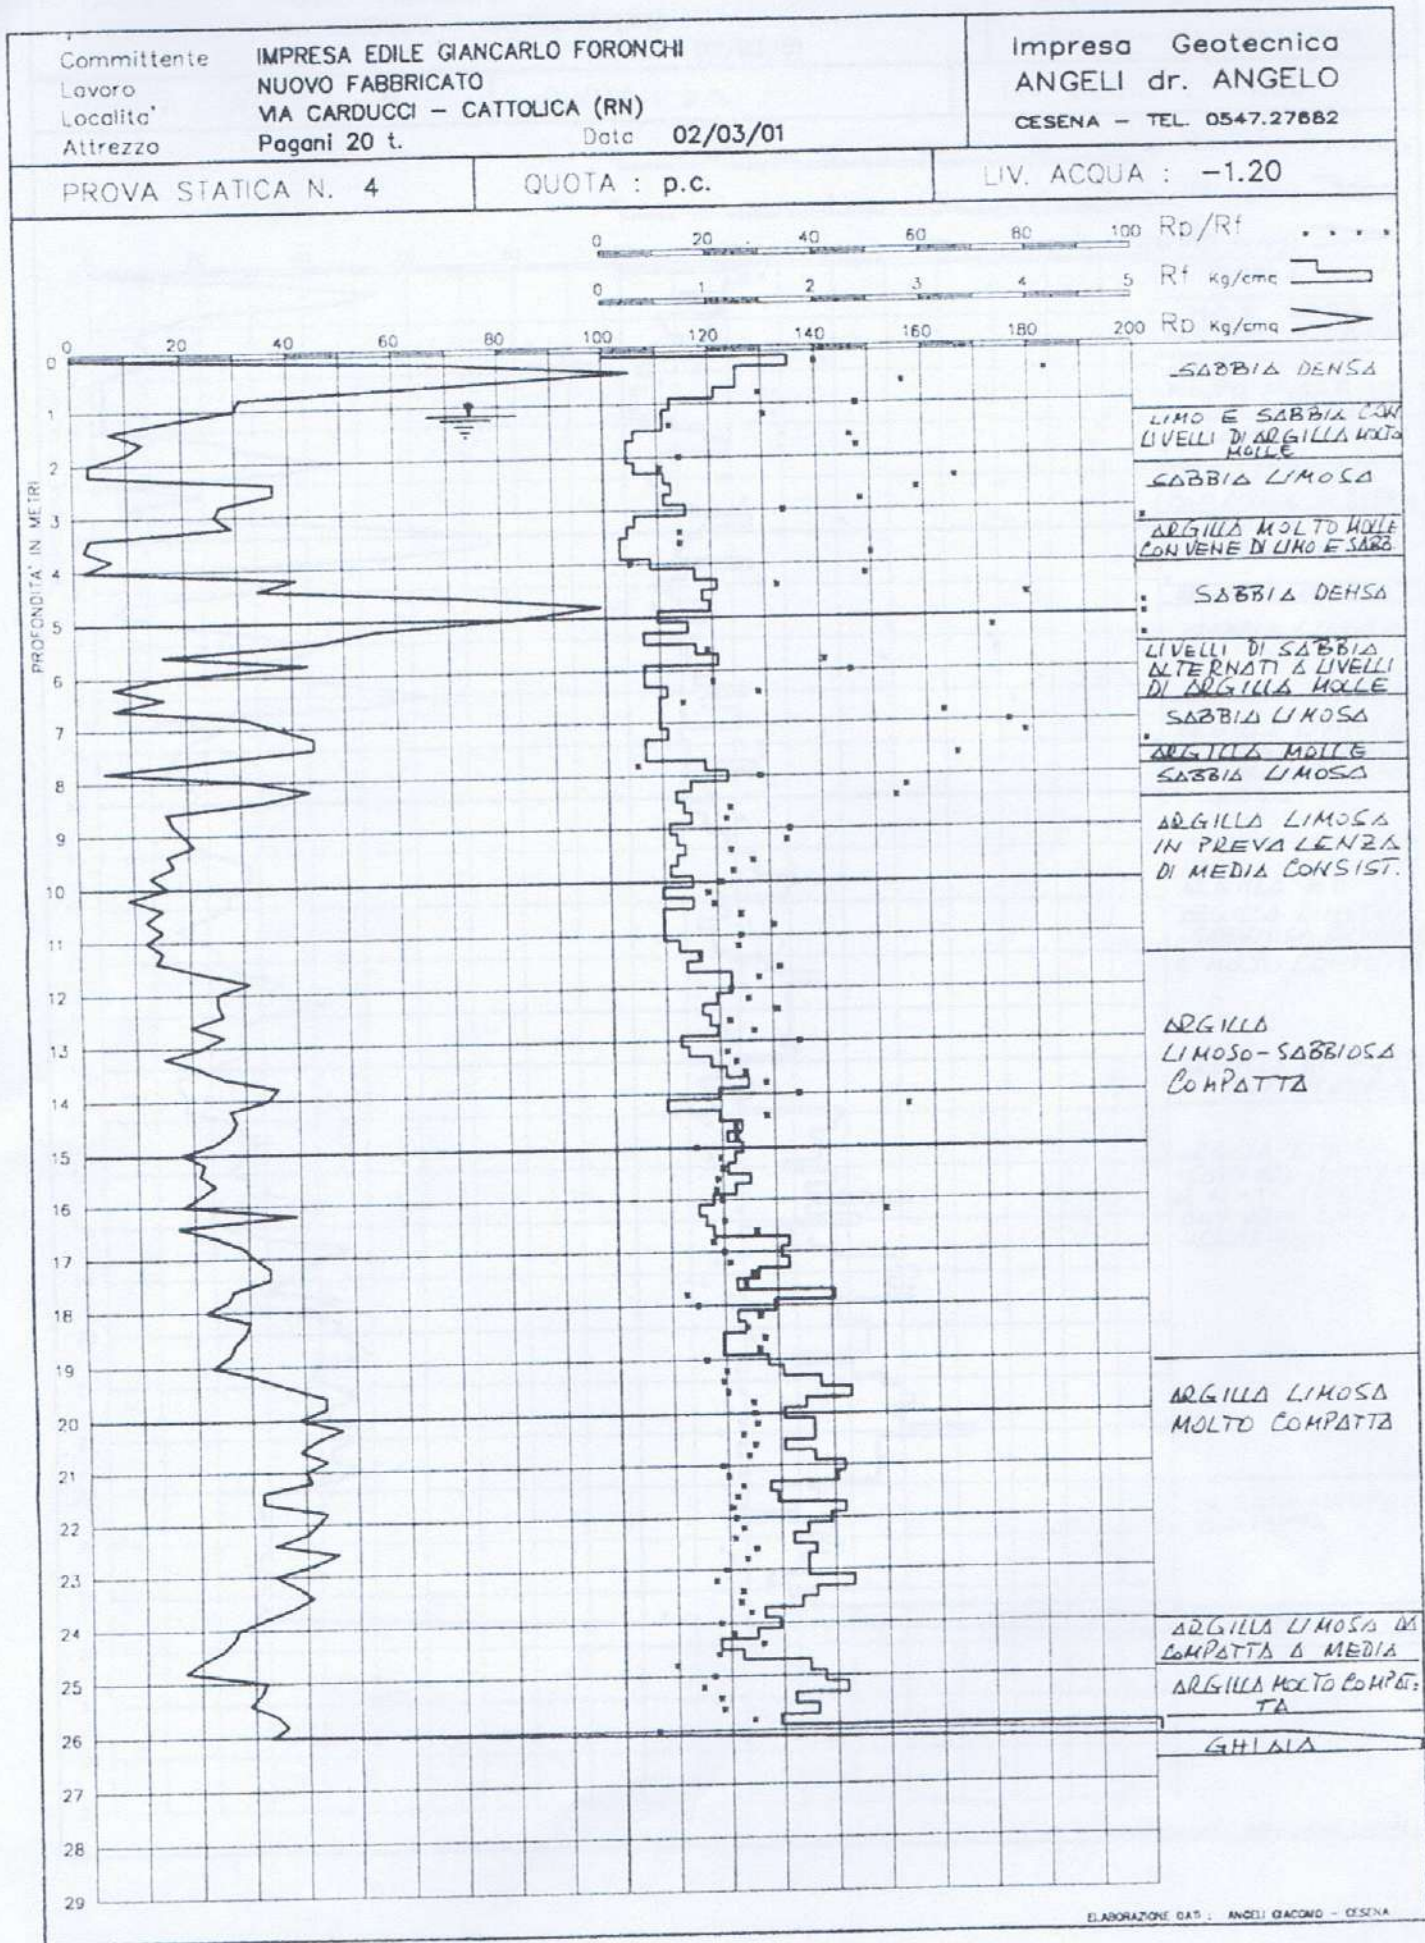 Committente IMPRESA EDILE GIANCARLO FORONCHI
Lavoro NUOVO FABBRICATO
Localita' VIA CARDUCCI – CATTOLICA (RN)
Attrezzo Pagani 20 t. Data 02/03/01
Impresa Geotecnica
ANGELI dr. ANGELO
CESENA – TEL. 0547.27682
PROVA STATICA N. 4
QUOTA : p.c.
LIV. ACQUA : -1.20
0 20 40 60 80 100 Rp/Rf
0 1 2 3 4 5 Rf Kg/cmq
0 20 40 60 80 100 120 140 160 180 200 Rp Kg/cmq
PROFONDITA' IN METRI
0
1
2
3
4
5
6
7
8
9
10
11
12
13
14
15
16
17
18
19
20
21
22
23
24
25
26
27
28
29
SABBIA DENSA
LIMO E SABBIA CON
LIVELLI DI ARGILLA MOLTO
MOLLE
SABBIA LIMOSA
ARGILLA MOLTO MOLLE
CON VENE DI LIMO E SABB.
SABBIA DENSA
LIVELLI DI SABBIA
ALTERNATI A LIVELLI
DI ARGILLA MOLLE
SABBIA LIMOSA
ARGILLA MOLLE
SABBIA LIMOSA
ARGILLA LIMOSA
IN PREVALENZA
DI MEDIA CONSIST.
ARGILLA
LIMOSO-SABBIOSA
COMPATTA
ARGILLA LIMOSA
MOLTO COMPATTA
ARGILLA LIMOSA DA
COMPATTA A MEDIA
ARGILLA MOLTO COMPAT=
TA
GHIAIA
ELABORAZIONE DATI : ANGELI GIACOMO – CESENA